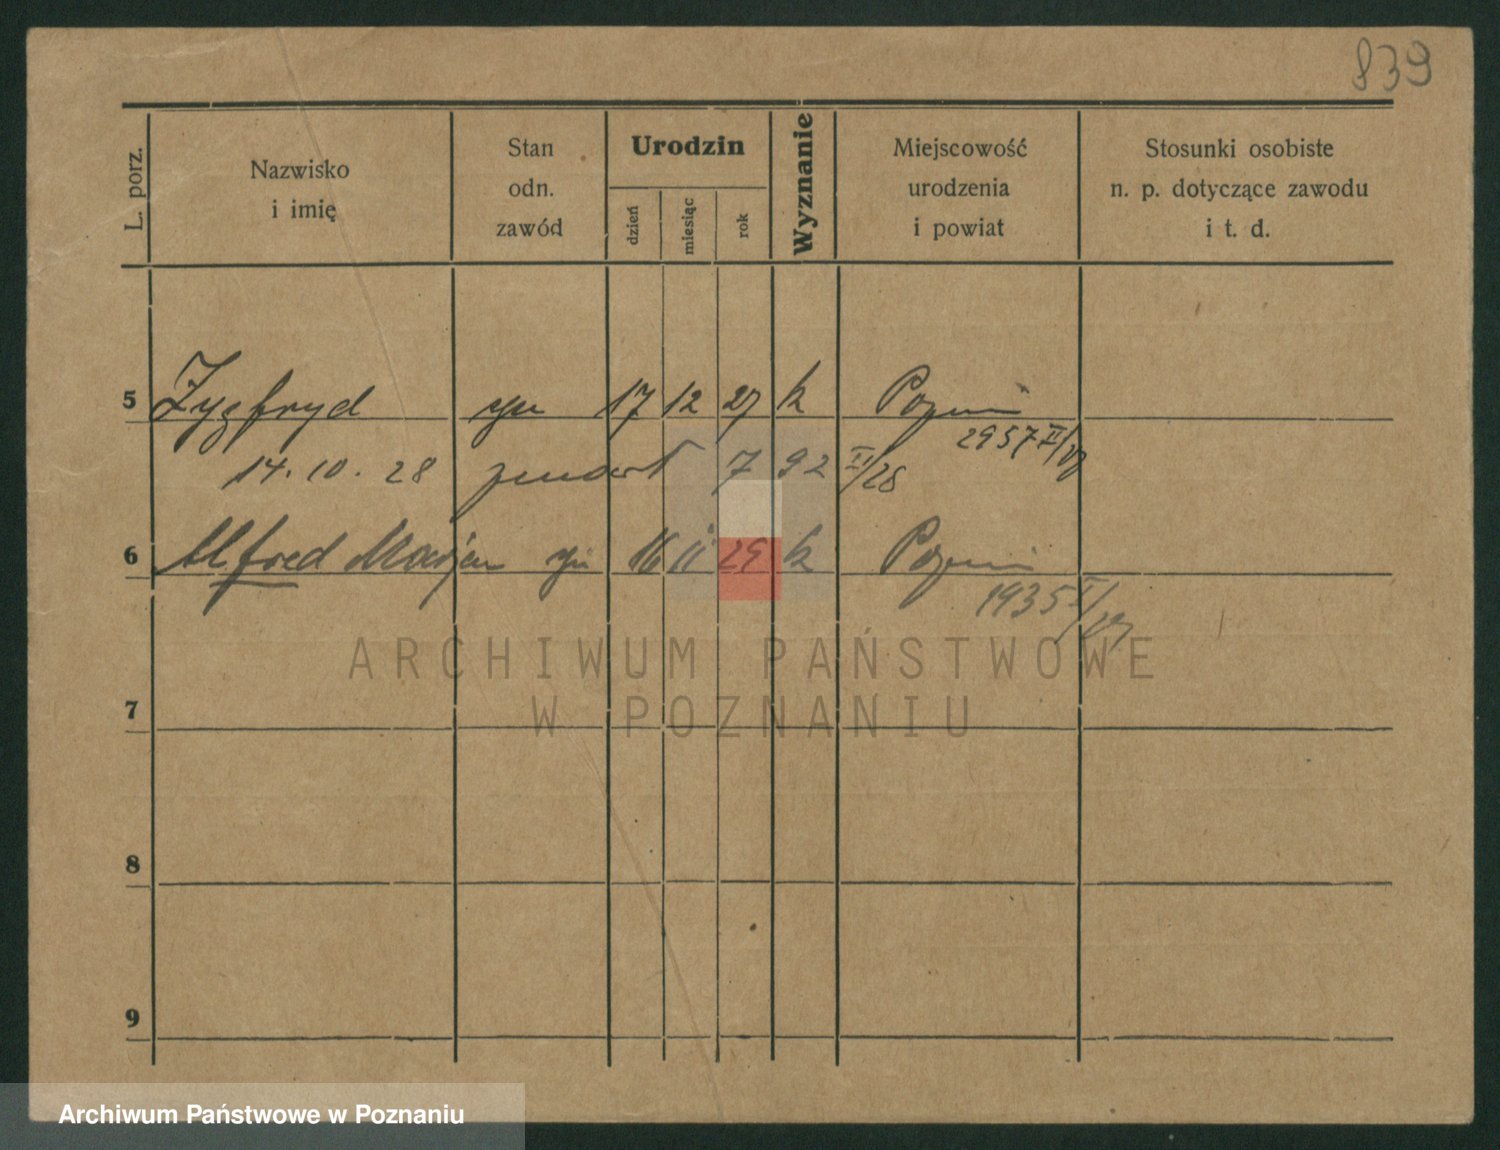 839
L. porz.
Nazwisko
i imię
Stan
odn.
zawód
Urodzin
dzień
miesiąc
rok
Wyznanie
Miejscowość
urodzenia
i powiat
Stosunki osobiste
n. p. dotyczące zawodu
i t. d.
5 Zygfryd syn 17 12 27 k Poznań
2957 II/27
14.10.28 zmarł 792 II/28
6 Alfred Marjan syn 16 11 29 k Poznań
1935 I/29
7
8
9
ARCHIWUM PAŃSTWOWE
W POZNANIU
Archiwum Państwowe w Poznaniu